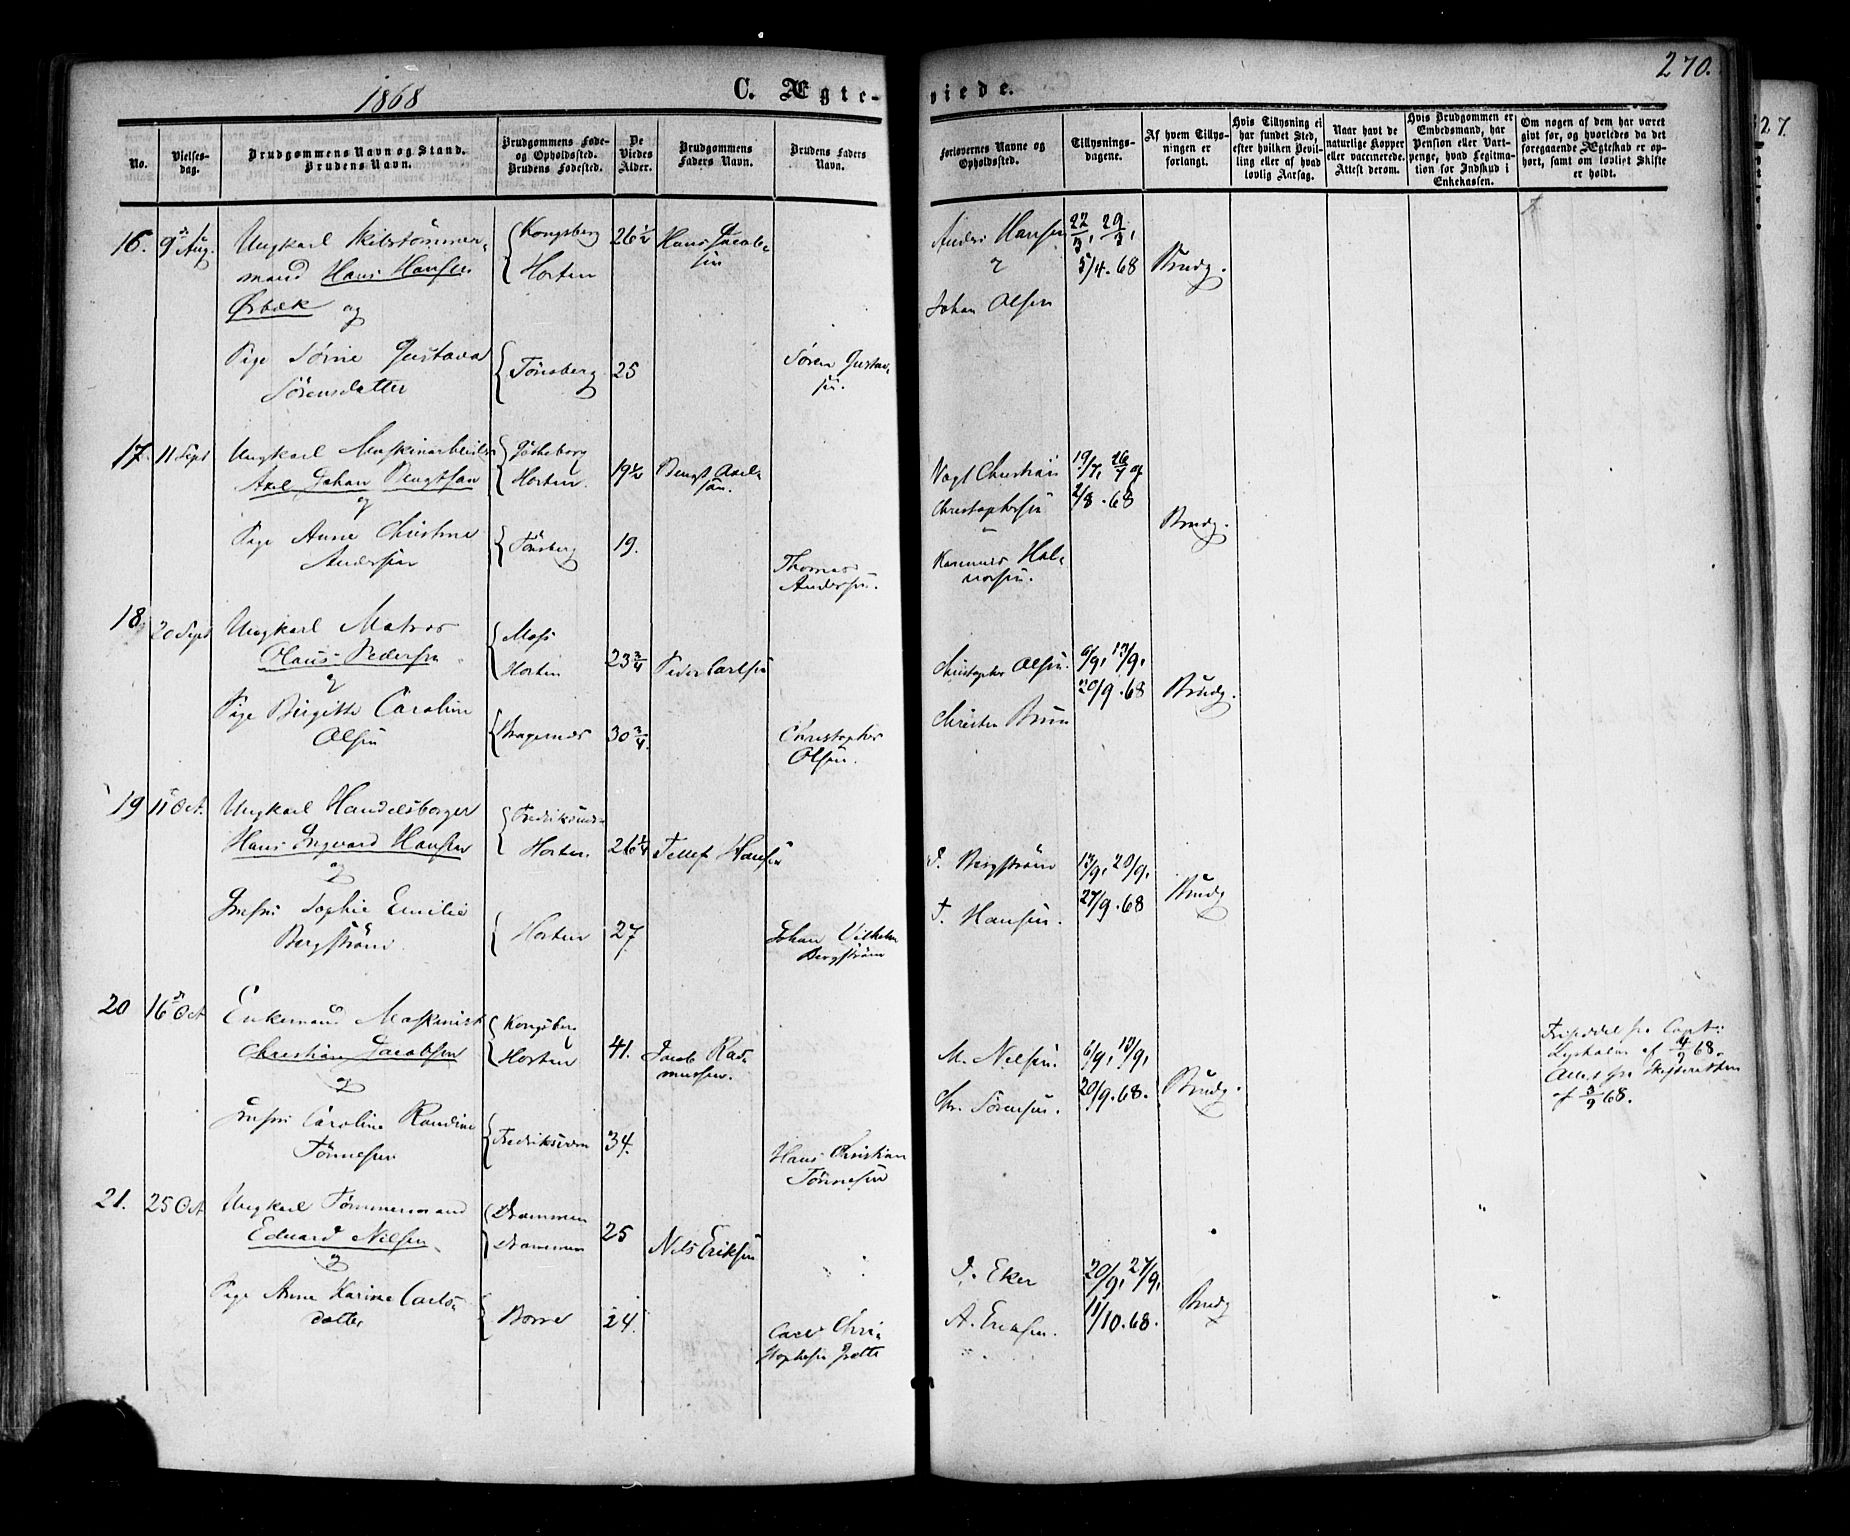 1868
C. Ægte-
viede.
270.
27.
No.
Vielses-
dag.
Brudgommens Navn og Stand.
Brudens Navn.
Brudgommens Føde-
og Opholdssted.
Brudens Fødested.
De
Viedes
Alder.
Brudgommens
Faders Navn.
Brudens Faders
Navn.
Forlovernes Navne og
Opholdssted.
Tillysnings-
dagene.
Af hvem Tillys-
ningen er
forlangt.
Hvis Tillysning ei
har fundet Sted,
efter hvilken Bevil-
ling eller af hvad
lovlig Aarsag.
Naar havt de
naturlige Kopper
eller vaccinerede.
Attest derom.
Hvis Brudgommen er
Embedsmand, har
Pension eller Vart-
penge, hvad Legitima-
tion for Indskud i
Enkekassen.
Om nogen af dem har været
givt før, og hvorledes da det
foregaaende Ægteskab er op-
hørt, samt om lovligt Skifte
er holdt.
16. 9 Aug.
Ungkarl Skibstömmer-
mand Hans Hansen
Ørbæk og
Kongsberg
Horten
26½
Hans Jacob-
sen
Pige Sørine Gustava
Sörensdatter
Tönsberg
25
Søren Gustav-
sen.
Anders Hansen
Johan Olsen
22/3, 29/3,
5/4. 68
Brudg.
17. 11 Sept
Ungkarl Maskinarbeider
Axel Johan Bengtson
og
Götheborg
Horten.
19½
Bengt Axel-
son.
Pige Anne Christine
Andersen
Tönsberg
19.
Thomas
Andersen.
Vogt Christian
Christophersen
Hal-
vorsen.
19/7, 26/7 og
2/8. 68
Brudg.
18. 20 Sept
Ungkarl Matros
Olaus Pedersen
og
Moss
Horten
23¾
Peder Carlsen
Pige Birgitte Caroline
Olsen
Bragernæs
30¾.
Christopher
Olsen.
Christopher Olsen.
Christen Bruun
6/9, 13/9,
20/9. 68
Brudg.
19 11 Oct.
Ungkarl Handelsborger
Hans Ingvard Hansen
og
Horten
26¼
Tellef Hansen
Jmfru Sophie Emilie
Bergström
Horten
27
Johan Vilhelm
Bergström
J. Bergström
T. Hansen.
13/9, 20/9,
27/9. 68
Brudg
20 16 Oct
Enkemand Maskinist
Christian Jacobsen
og
Kongsberg
Horten
41.
Jacob Ras-
mussen.
Jmfru Caroline Randine
Tönnesen
Fredriksværn
34.
Hans Christian
Tönnesen
M. Nilsen.
Chr. Sörensen.
6/9, 13/9,
20/9. 68.
Brudg.
Friseddel fra Capt:
af 4/9 68.
Attest fra Skifteretten
af 3/9 68.
21. 25 Oct
Ungkarl Tömmermand
Edvard Nilsen
og
Drammen
Drammen
25
Nils Eriksen
Pige Anne Karine Carls-
datter
Borre
24.
Carl Chri-
stophersen
J. Eker
A. Eriksen.
20/9, 27/9,
11/10. 68.
Brudg